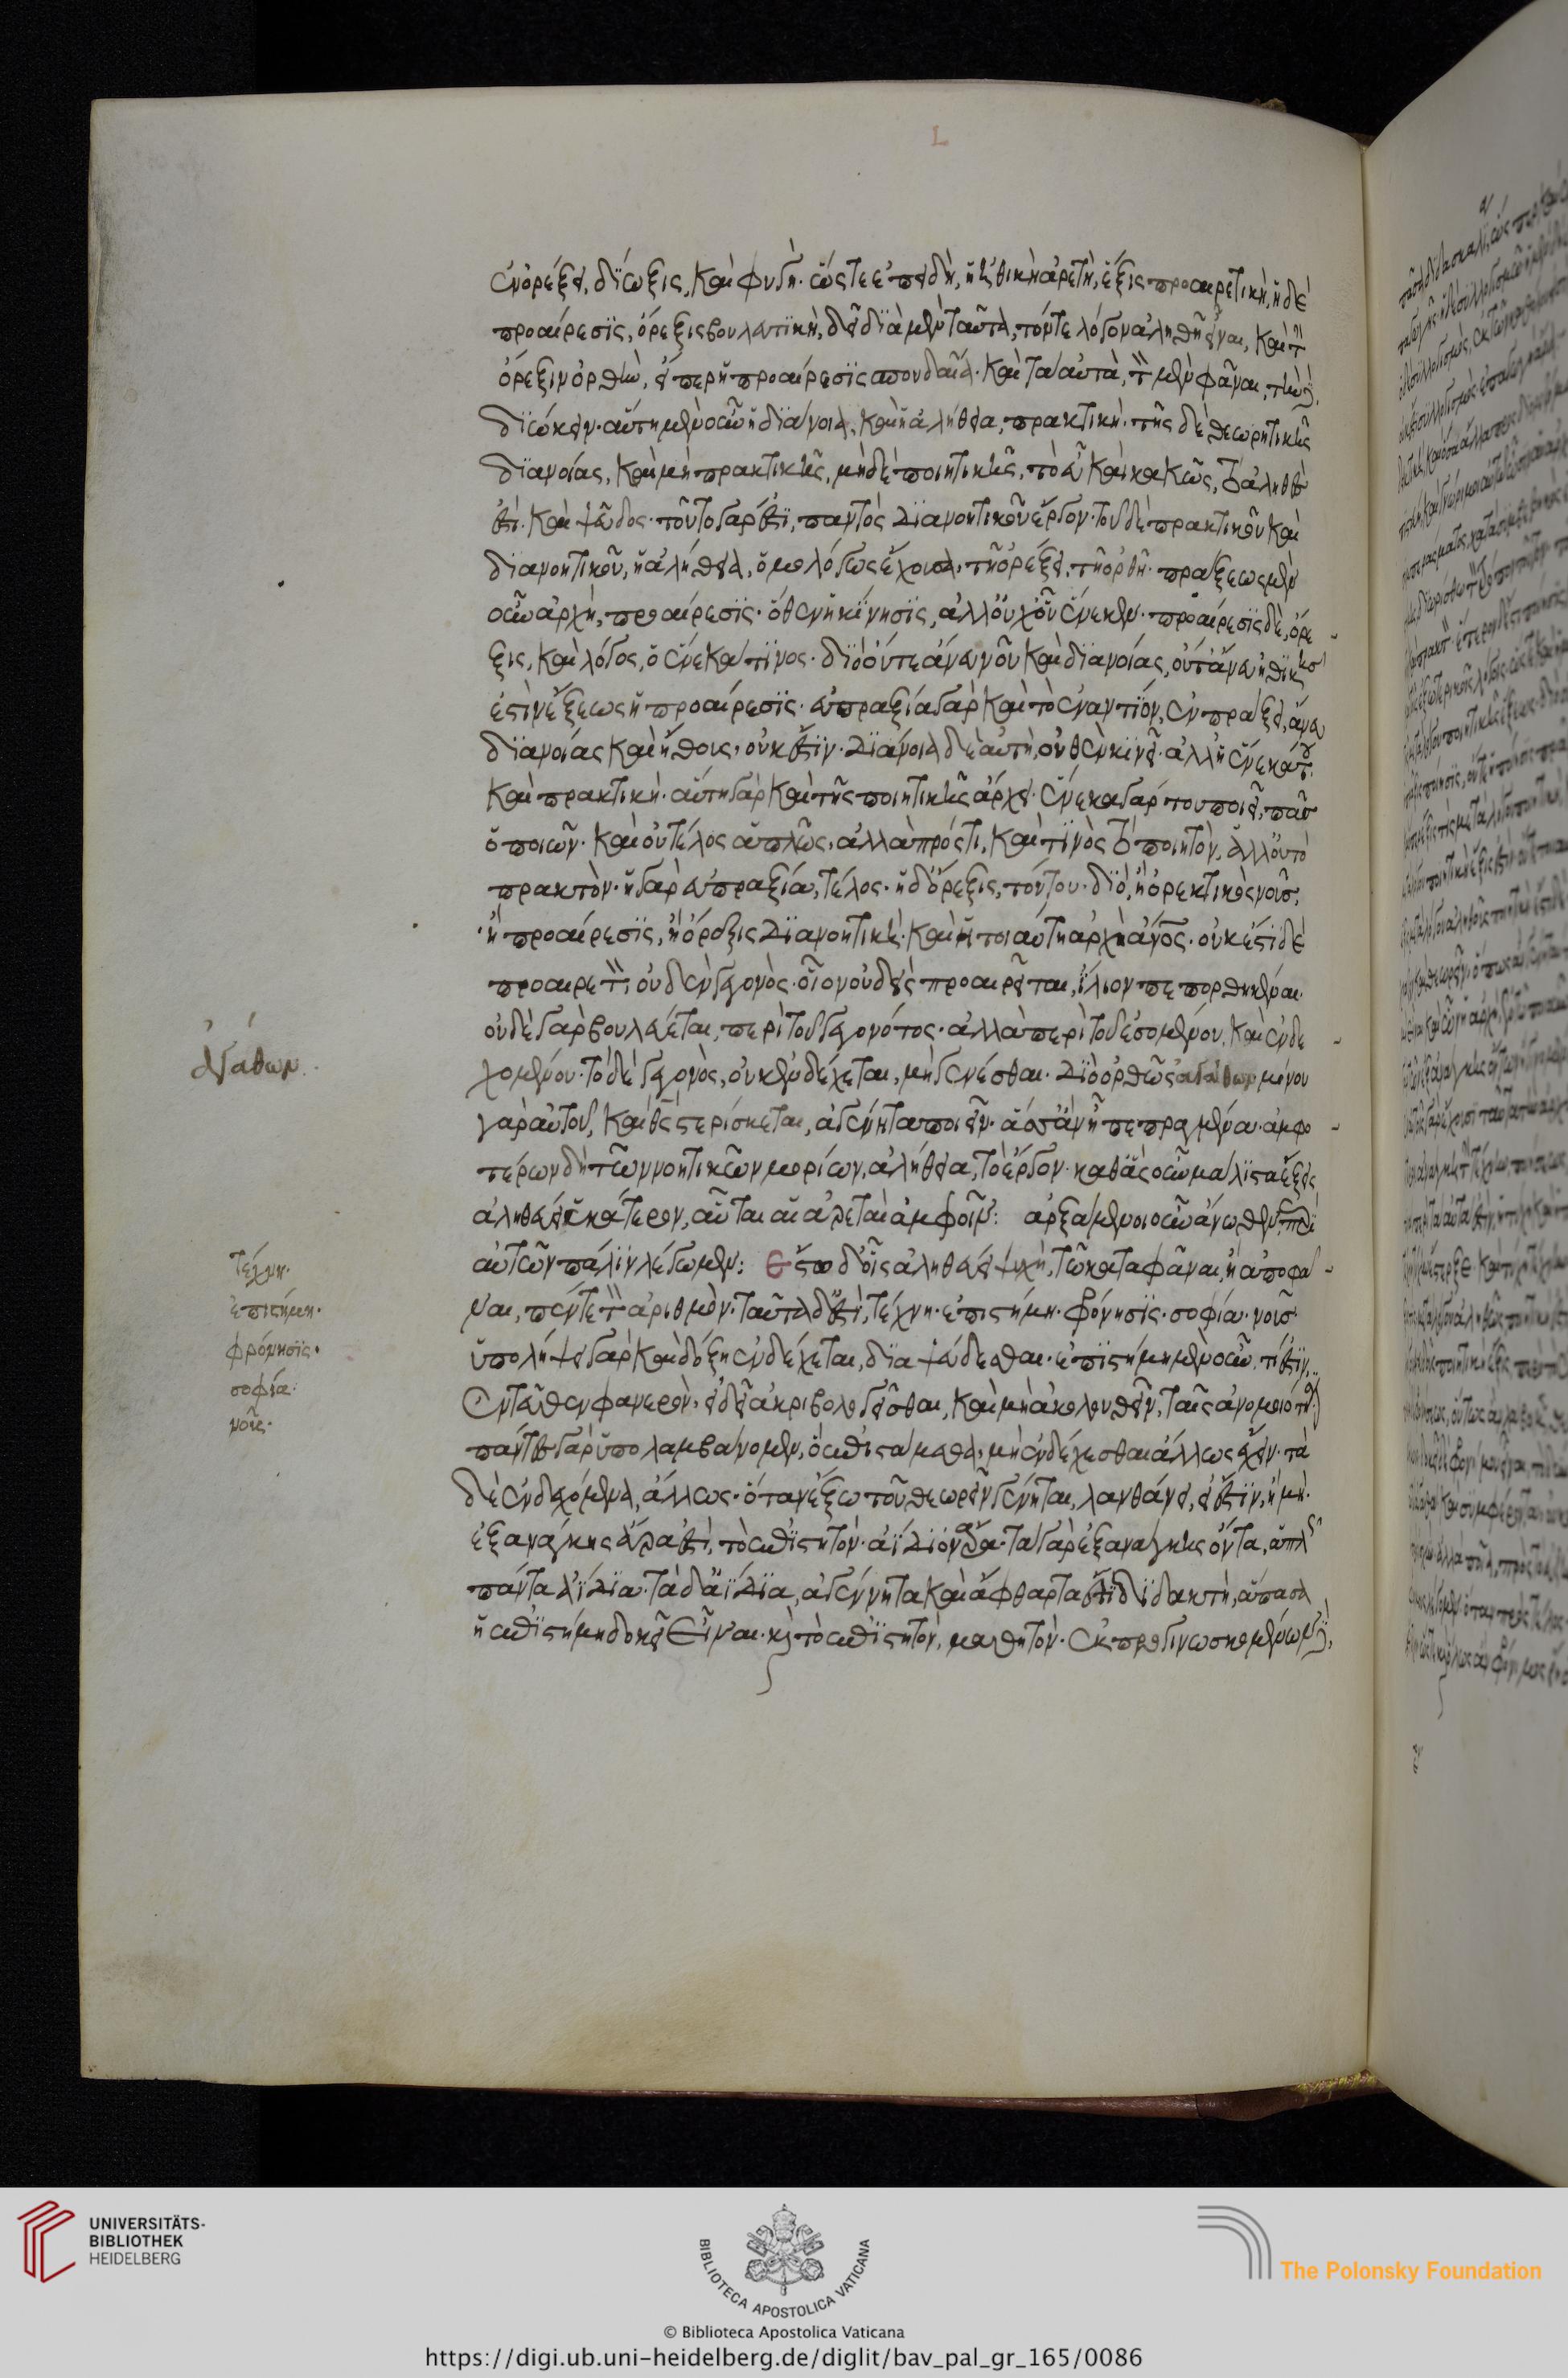 L
ἐν ὀρέξει, δίωξις, καὶ φυγή. ὥς τε ἐπειδὴ, ἡ ἠθικὴ ἀρετὴ, ἕξις προαιρετικὴ, ἡ δὲ
προαίρεσις, ὄρεξις βουλευτικὴ, δεῖ διὰ μὲν ταῦτα, τόν τε λόγον ἀληθῆ εἶναι, καὶ τὴν
ὄρεξιν ὀρθὴν, εἴπερ ἡ προαίρεσις σπουδαία. καὶ τὰ αὐτὰ, τὸν μὲν φάναι, τὴν δὲ
διώκειν. αὕτη μὲν οὖν ἡ διάνοια, καὶ ἡ ἀλήθεια, πρακτική. τῆς δὲ θεωρητικῆς
διανοίας, καὶ μὴ πρακτικῆς, μηδὲ ποιητικῆς, τὸ εὖ καὶ κακῶς, τὸ ἀληθές
ἐστι. καὶ ψεῦδος. τοῦτο γάρ ἐστι, παντὸς διανοητικοῦ ἔργον. τοῦ δὲ πρακτικοῦ καὶ
διανοητικοῦ, ἡ ἀλήθεια, ὁμολόγως ἔχουσα, τῇ ὀρέξει, τῇ ὀρθῇ. πράξεως μὲν
οὖν ἀρχὴ, προαίρεσις. ὅθεν ἡ κίνησις, ἀλλ' οὐχ οὗ ἕνεκεν. προαίρεσις δὲ, ὄρε -
ξις, καὶ λόγος, ὁ ἕνεκά τινος. διὸ οὔτε ἄνευ νοῦ καὶ διανοίας, οὔτ' ἄνευ ἠθικῆς
ἐστὶν ἕξεως ἡ προαίρεσις. εὐπραξία γὰρ καὶ τὸ ἐναντίον, ἐν πράξει, ἄνευ
διανοίας καὶ ἤθους, οὐκ ἔστιν. διάνοια δὲ αὐτὴ, οὐθὲν κινεῖ. ἀλλ' ἡ ἕνεκά του
καὶ πρακτική. αὕτη γὰρ καὶ τῆς ποιητικῆς ἄρχει. ἕνεκα γάρ του ποιεῖ, πᾶς
ὁ ποιῶν. καὶ οὐ τέλος ἁπλῶς, ἀλλὰ πρός τι, καὶ τινὸς τὸ ποιητόν. ἀλλ' οὐ τὸ
πρακτόν. ἡ γὰρ εὐπραξία, τέλος. ἡ δ' ὄρεξις, τούτου. διὸ, ἢ ὀρεκτικὸς νοῦς,
ἡ προαίρεσις, ἢ ὄρεξις διανοητική. καὶ ἡ τοιαύτη ἀρχὴ ἄνος. οὐκ ἔστι δὲ
προαιρετὸν, οὐδὲν γεγονός. οἷον οὐδεὶς προαιρεῖται, ἴλιον πεπορθηκέναι.
οὐδὲ γὰρ βουλεύεται, περὶ τοῦ γεγονότος. ἀλλὰ περὶ τοῦ ἐσομένου, καὶ ἐνδε -
χομένου. τὸ δὲ γεγονὸς, οὐκ ἐνδέχεται, μὴ γενέσθαι. διὸ ὀρθῶς ἀγάθων μόνου
γὰρ αὐτοῦ, καὶ θς στερίσκεται, ἀγένητα ποιεῖν. ἅσσ' ἂν ᾖ πεπραγμένα. ἀμφο -
τέρων δὴ τῶν νοητικῶν μορίων, ἀλήθεια, τὸ ἔργον. καθ' ἃς οὖν μάλιστα ἕξεις
ἀληθεύσει ἑκάτερον, αὗται αἱ ἀρεταὶ ἀμφοῖν: ἀρξάμενοι οὖν ἄνωθεν, περὶ
αὐτῶν πάλιν λέγωμεν: ἔστω δ' οἷς ἀληθεύει ψυχὴ, τῷ καταφάναι, ἢ ἀποφά -
ναι, πέντε τὸν ἀριθμόν. ταῦτα δ' ἐστὶ, τέχνη. ἐπιστήμη. φρόνησις. σοφία. νοῦς.
ὑπολήψει γὰρ καὶ δόξῃ ἐνδέχεται, διαψεύδεσθαι. ἐπιστήμη μὲν οὖν, τί ἐστιν,
ἐνταῦθεν φανερὸν, εἰ δεῖ ἀκριβολογεῖσθαι, καὶ μὴ ἀκολουθεῖν, ταῖς ἀνομοιότησι
πάντες γὰρ ὑπολαμβάνομεν, ὃ ἐπιστάμεθα, μὴ ἐνδέχεσθαι ἄλλως ἔχειν. τὰ
δὲ ἐνδεχόμενα, ἄλλως. ὅταν ἔξω τοῦ θεωρεῖν γένηται, λανθάνει, εἰ ἔστιν, ἢ μή.
ἐξ ἀνάγκης ἄρα ἐστὶ, τὸ ἐπιστητόν. ἀΐδιον ἄρα. τὰ γὰρ ἐξ ἀνάγκης ὄντα, ἁπλῶς
πάντα ἀΐδια. τὰ δ' ἀΐδια, ἀγέννητα καὶ ἄφθαρτα ἔτι διδακτὴ, ἅπασα
ἡ ἐπιστήμη δοκεῖ εἶναι. καὶ τὸ ἐπιστητὸν, μαθητόν. ἐκ προγινωσκομένων δὲ,
ἀγάθων.
τέχνη.
ἐπιστήμη.
φρόνησις.
σοφία.
νοῦς.
UNIVERSITÄTS-
BIBLIOTHEK
HEIDELBERG
BIBLIOTECA APOSTOLICA VATICANA
The Polonsky Foundation
© Biblioteca Apostolica Vaticana
https://digi.ub.uni-heidelberg.de/diglit/bav_pal_gr_165/0086